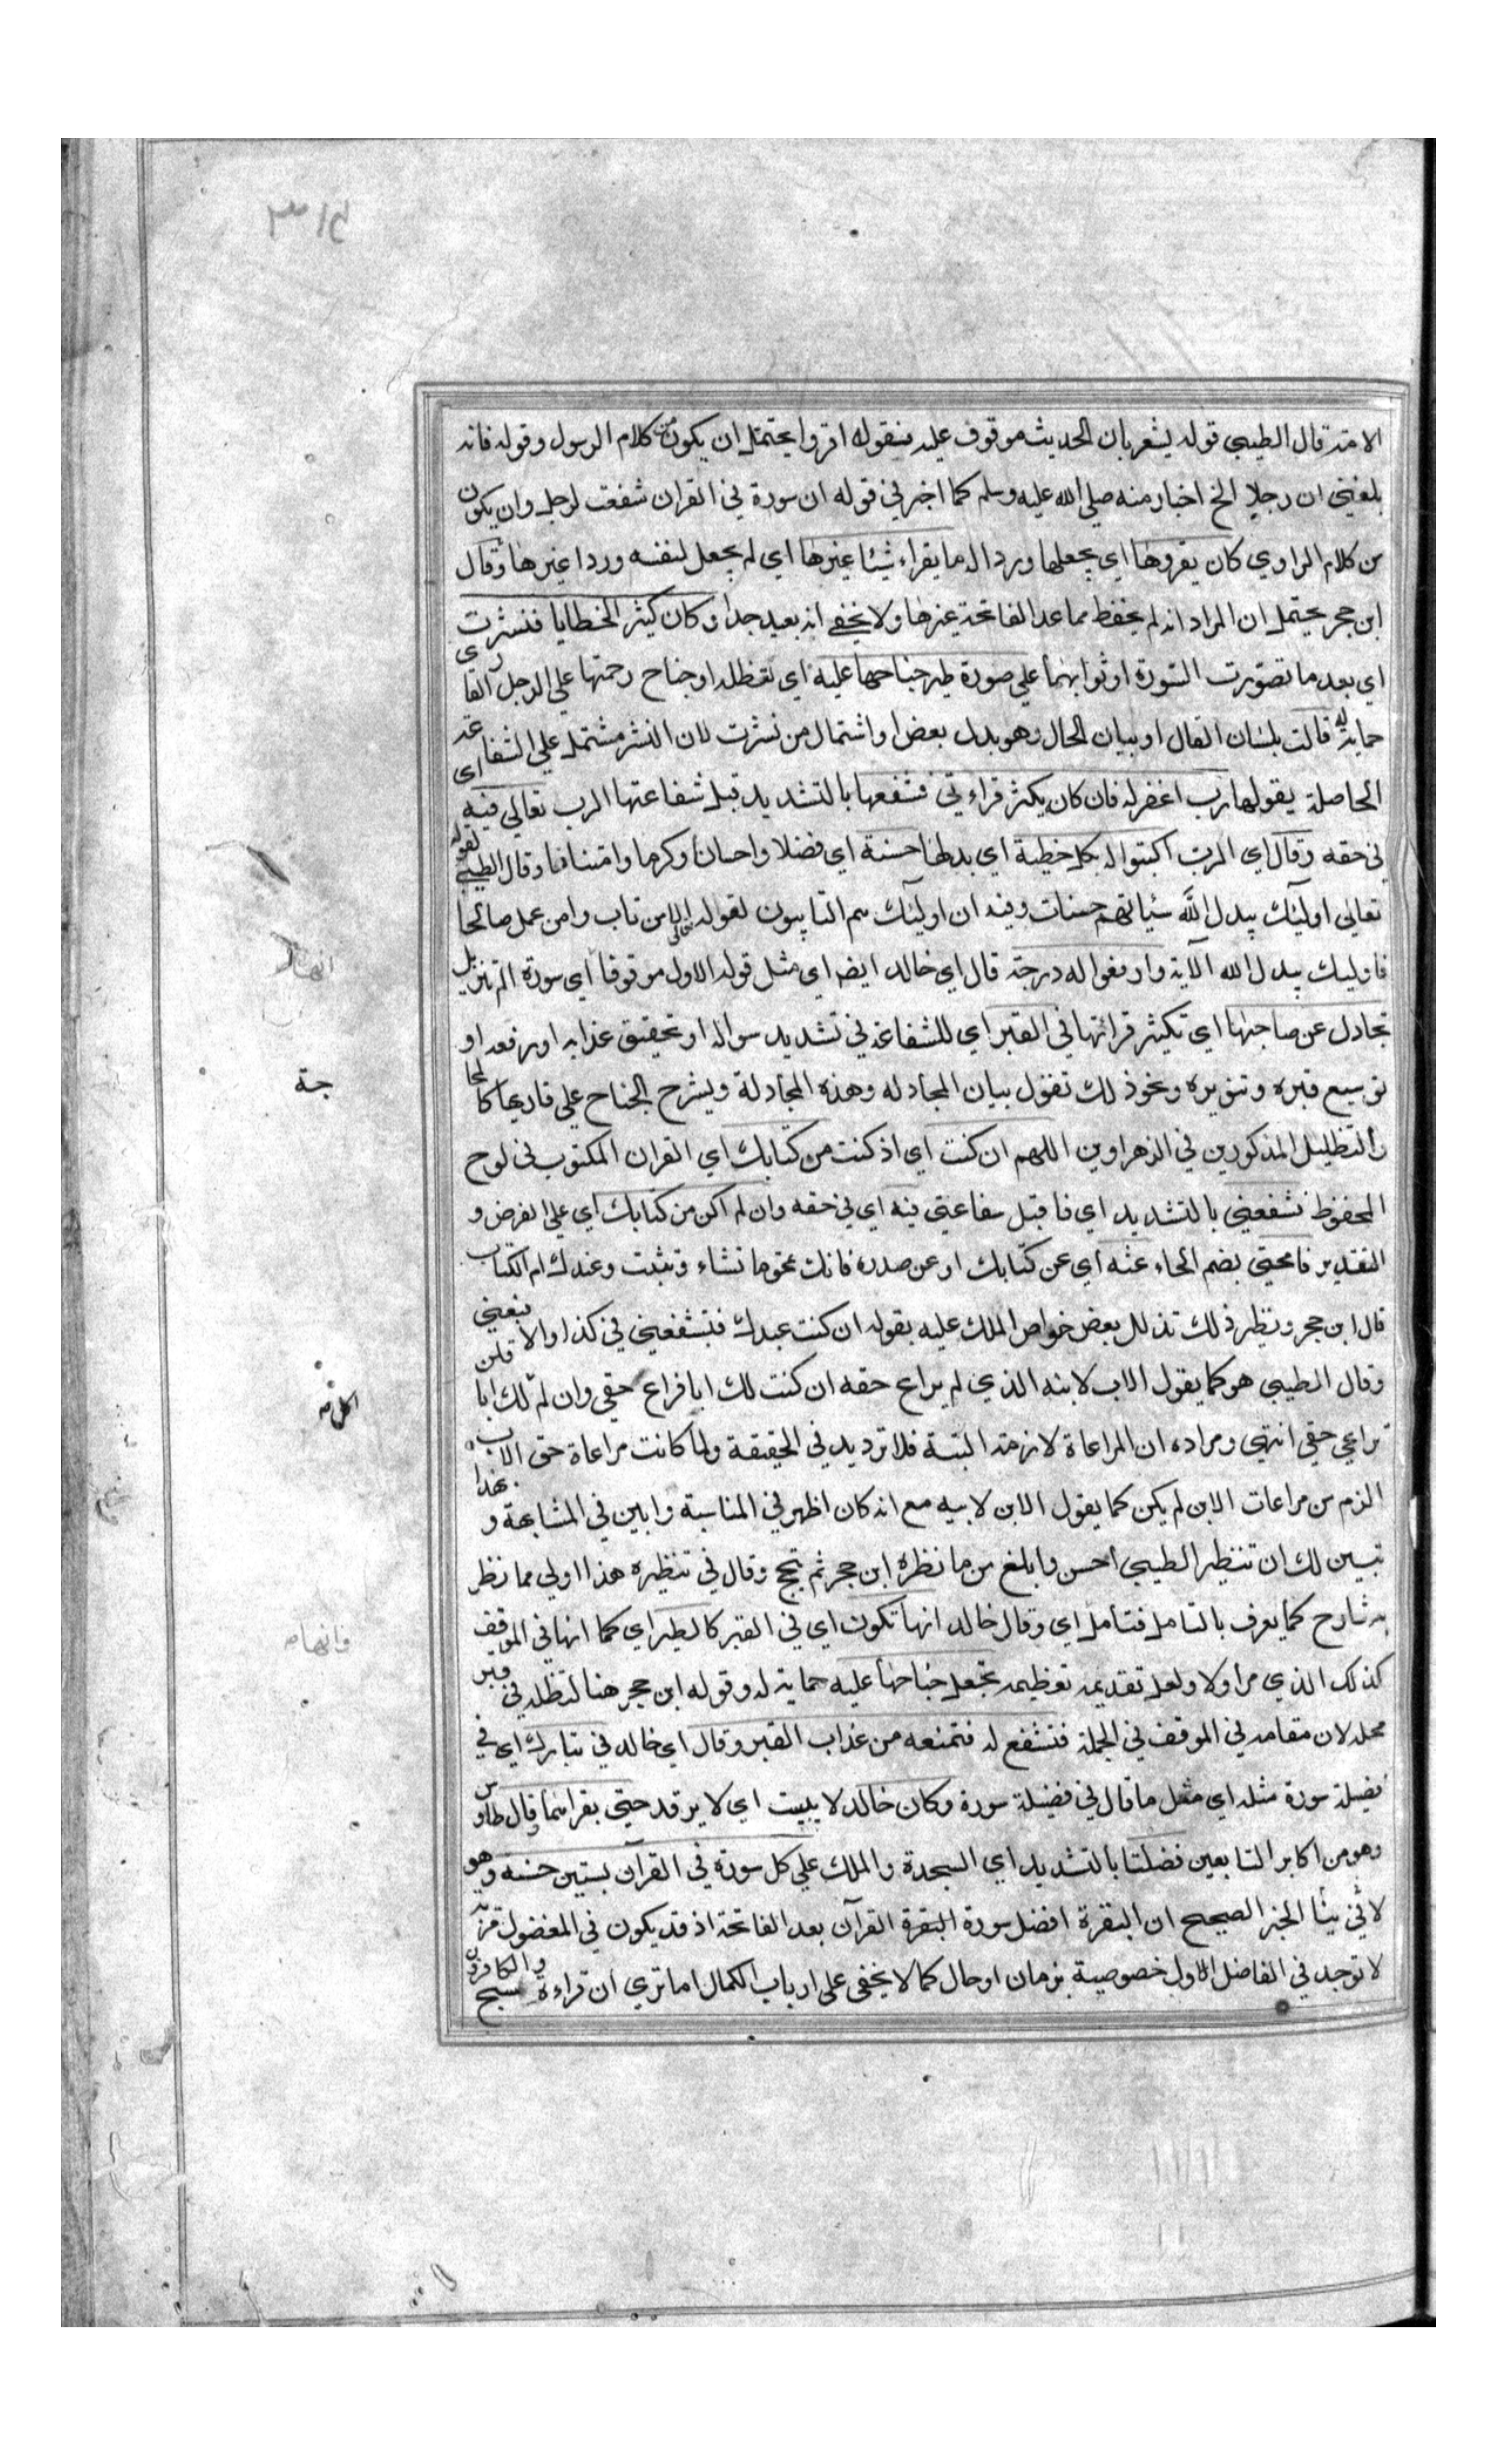 الامة قال الطيبي قوله يشعر بان الحديث موقوف عليه فنقوله اقروا يحتمل ان يكون من كلام الرسول وقوله فانه
بلغني ان رجلا الخ اخبار منه صلي الله عليه وسلم كما اخبر في قوله ان سورة في القران شفعت لرجل وان يكون
من كلام الراوي كان يقروها اي يجعلها وردا له ما يقراء شيئا غيرها اي لم يجعل لنفسه وردا غيرها وقال
ابن حجر يحتمل ان المراد انه لم يحفظ مما عدا الفاتحة غيرها ولا يخفي انه بعيد جدا وكان كثير الخطايا فنشرت
اي بعد ما تصورت السورة او ثوابهما علي صورة طير جناحها عليه اي تظله او جناح رحمتها علي الرجل القاري
حماية له قالت بلسان القال او بيان الحال وهو بدل بعض او اشتمال من نشرت لان النشر مشتمل علي الشفاعة
الحاصلة بقولها رب اغفر له فان كان يكثر قراءتي فشفعها بالتشديد قبل شفاعتها الرب تعالي فيه اي
في حقه وقال اي الرب اكتبوا له بكل خطية اي بدلها حسنة اي فضلا واحسانا وكرما وامتنانا وقال الطيبي لقوله
تعالي اوليك يبدل الله سيئاتهم حسنات وفيه ان اوليك هم التايبون لقوله تعالي الا من تاب وامن عمل صالحا
فاوليك يبدل الله الآية وارفعوا له درجة قال اي خالد ايضا اي مثل قوله الاول موقوفا اي سورة الم تنزيل
تجادل عن صاحبها اي تكثر قرائتها في القبر اي للشفاعة في تشديد سواله او تحقيق عذابه او رفعه او
توسيع قبره وتنويره ونحو ذلك تقول بيان المجادله وهذه المجادلة ويشرح الجناح علي قاريها كالمحا
والتظليل المذكورين في الزهراوين اللهم ان كنت اي اذ كنت من كتابك اي القران المكتوب في لوح
المحفوظ فشفعني بالتشديد اي فاقبل شفاعتي فيه اي في حقه وان لم اكن من كتابك اي علي الفرض و
التقدير فامحني بضم الحاء عنه اي عن كتابك او عن صدره فانك تمحو ما تشاء وتثبت وعندك ام الكتاب
قال ابن حجر ونظير ذلك تذلل بعض خواص الملك عليه بقوله ان كنت عبدك فتشفعني في كذا والا فبعني
وقال الطيبي هو كما يقول الاب لابنه الذي لم يراع حقه ان كنت لك ابا فراع حقي وان لم لك ابا فلن
تراعي حقي انتهي ومراده ان المراعاة لازمة البتة فلا ترديد في الحقيقة ولما كانت مراعاة حق الاب
الزم من مراعات الابن لم يكن كما يقول الابن لابيه مع انه كان اظهر في المناسبة وابين في المشابهة و بهذا
تبين لك ان تنظير الطيبي احسن وابلغ من ما نظره ابن حجر ثم تبجح وقال في تنظيره هذا اولي مما نظر
به شارح كما يعرف بالتامل فتأمل اي وقال خالد انها تكون اي في القبر كالطير اي كما انها في الموقف
كذلك الذي مر اولا ولعل تقديمه تعظيمه تجعل جناحها عليه حماية له وقوله ابن حجر هنا لتظله في غير
محله لان مقامه في الموقف في الجملة فتشفع له فتمنعه من عذاب القبر وقال اي خالد في تبارك اي في
فضيلة سورة مثله اي مثل ما قال في فضيلة سورة وكان خالد لا يبيت اي لا يرقد حتي يقراهما وقال طاوس
وهو من اكابر التابعين فضلتا بالتشديد اي السجدة والملك علي كل سورة في القرآن بستين حسنه وهو
لا ينافي الخبر الصحيح ان البقرة افضل سورة البقرة القرآن بعد الفاتحة اذ قد يكون في المفضول مزية
لا توجد في الفاضل الاول خصوصية بزمان او حال كما لا يخفي علي ارباب الكمال اما تري ان قراءة سبح والكافرون
جة